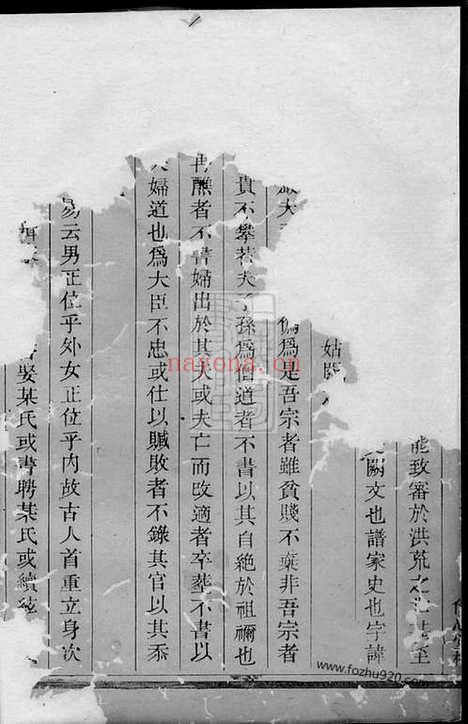 能致審於洪荒之
至
闕文也譜家史也字諱
姑闕
為是吾宗者雖貧賤不棄非吾宗者
貴不攀若夫子孫為僧道者不書以其自絕於祖禰也
醮者不書婦出於其夫或夫亡而改適者卒葬不書以
婦道也為大臣不忠或仕以贓敗者不錄其官以其忝
易云男正位乎外女正位乎內故古人首重立身次
娶某氏或書聘某氏或續
nayona.cn
www.fozhu920.com